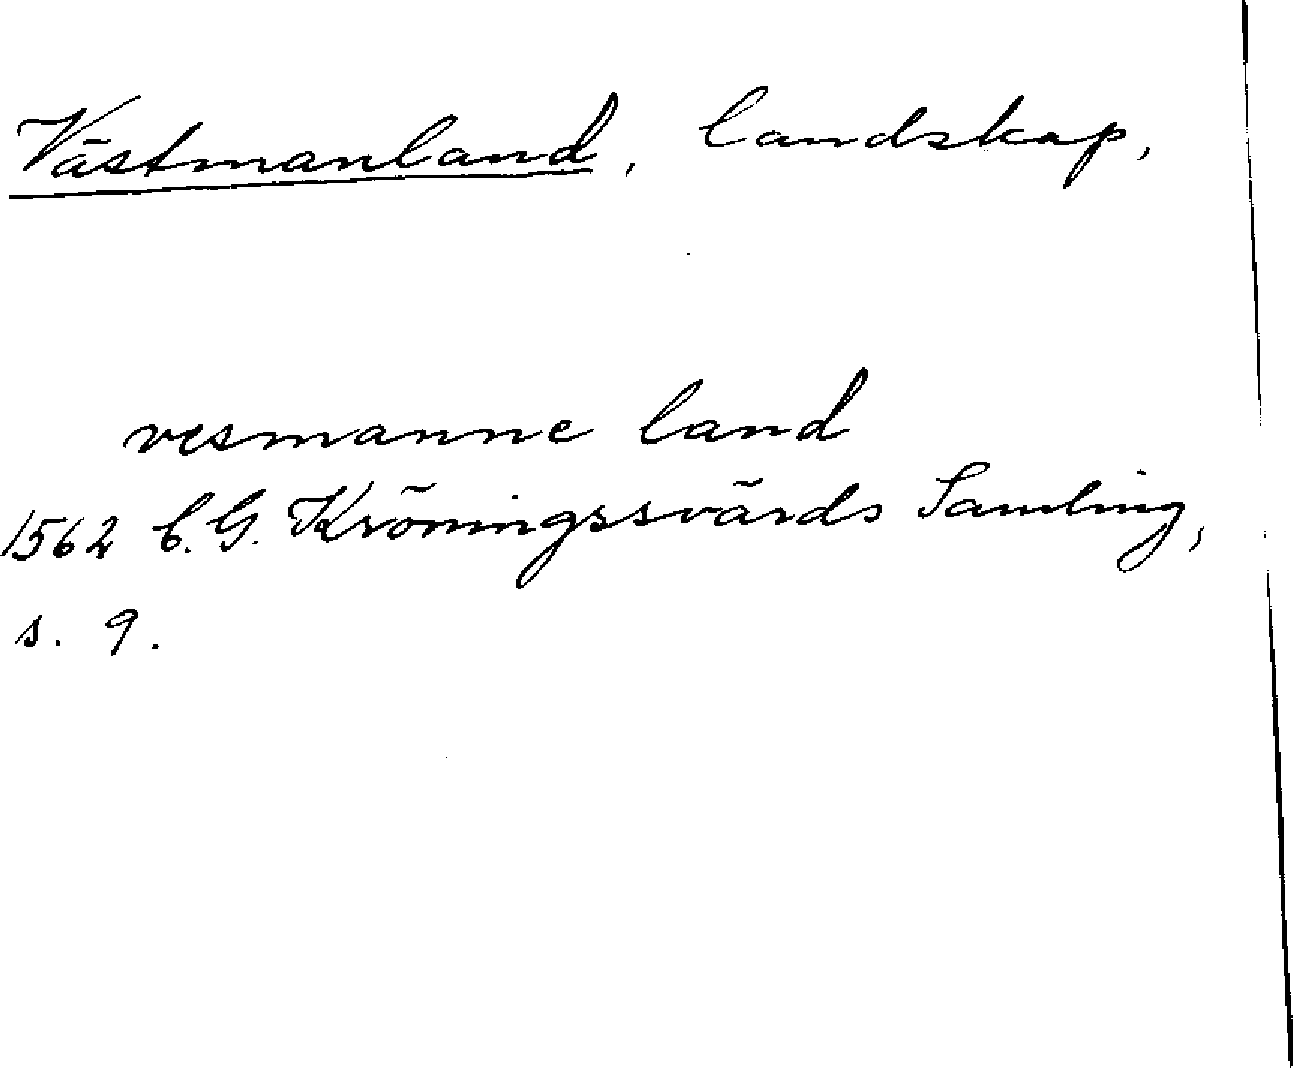 Västmanland, landskap,
vesmanne land
1562 C. G. Kröningssvärds Samling,
s. 9.